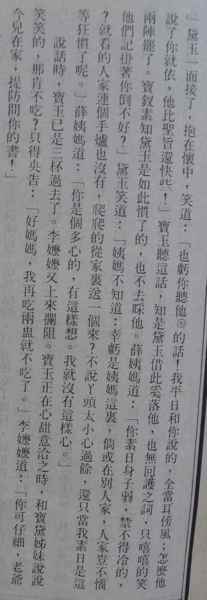 黛玉一面接了，抱在懷中，笑道：「也虧你聽他⑨的話！我平日和你說的，全當耳傍風，怎麼他
說了你就依，他比聖旨還快些！」寶玉聽這話，知是黛玉借此奚落他，也無回護之詞，只嘻嘻的笑
兩陣罷了。寶釵素知黛玉是如此慣了的，也不去睬他。薛姨媽道：「你素日身子弱，禁不得冷的，
他們記掛著你倒不好？」黛玉笑道：「姨媽不知道：幸虧是姨媽這裏，倘或在別人家，人家豈不惱
？就看的人家連個手爐也沒有，爬爬的從家裏送一個來？不說丫頭太小心過餘，還只當我素日是這
等狂慣了呢。」薛姨媽道：「你是個多心的，有這樣想。我就沒有這樣心。」
說話時，寶玉已是三杯過去了。李嬤嬤又上來攔阻。寶玉正在心甜意洽之時，和寶黛姊妹說說
笑笑的，那肯不吃？只得央告：「好媽媽，我再吃兩盅就不吃了。」李嬤嬤道：「你可仔細，老爺
今兒在家，提防問你的書！」